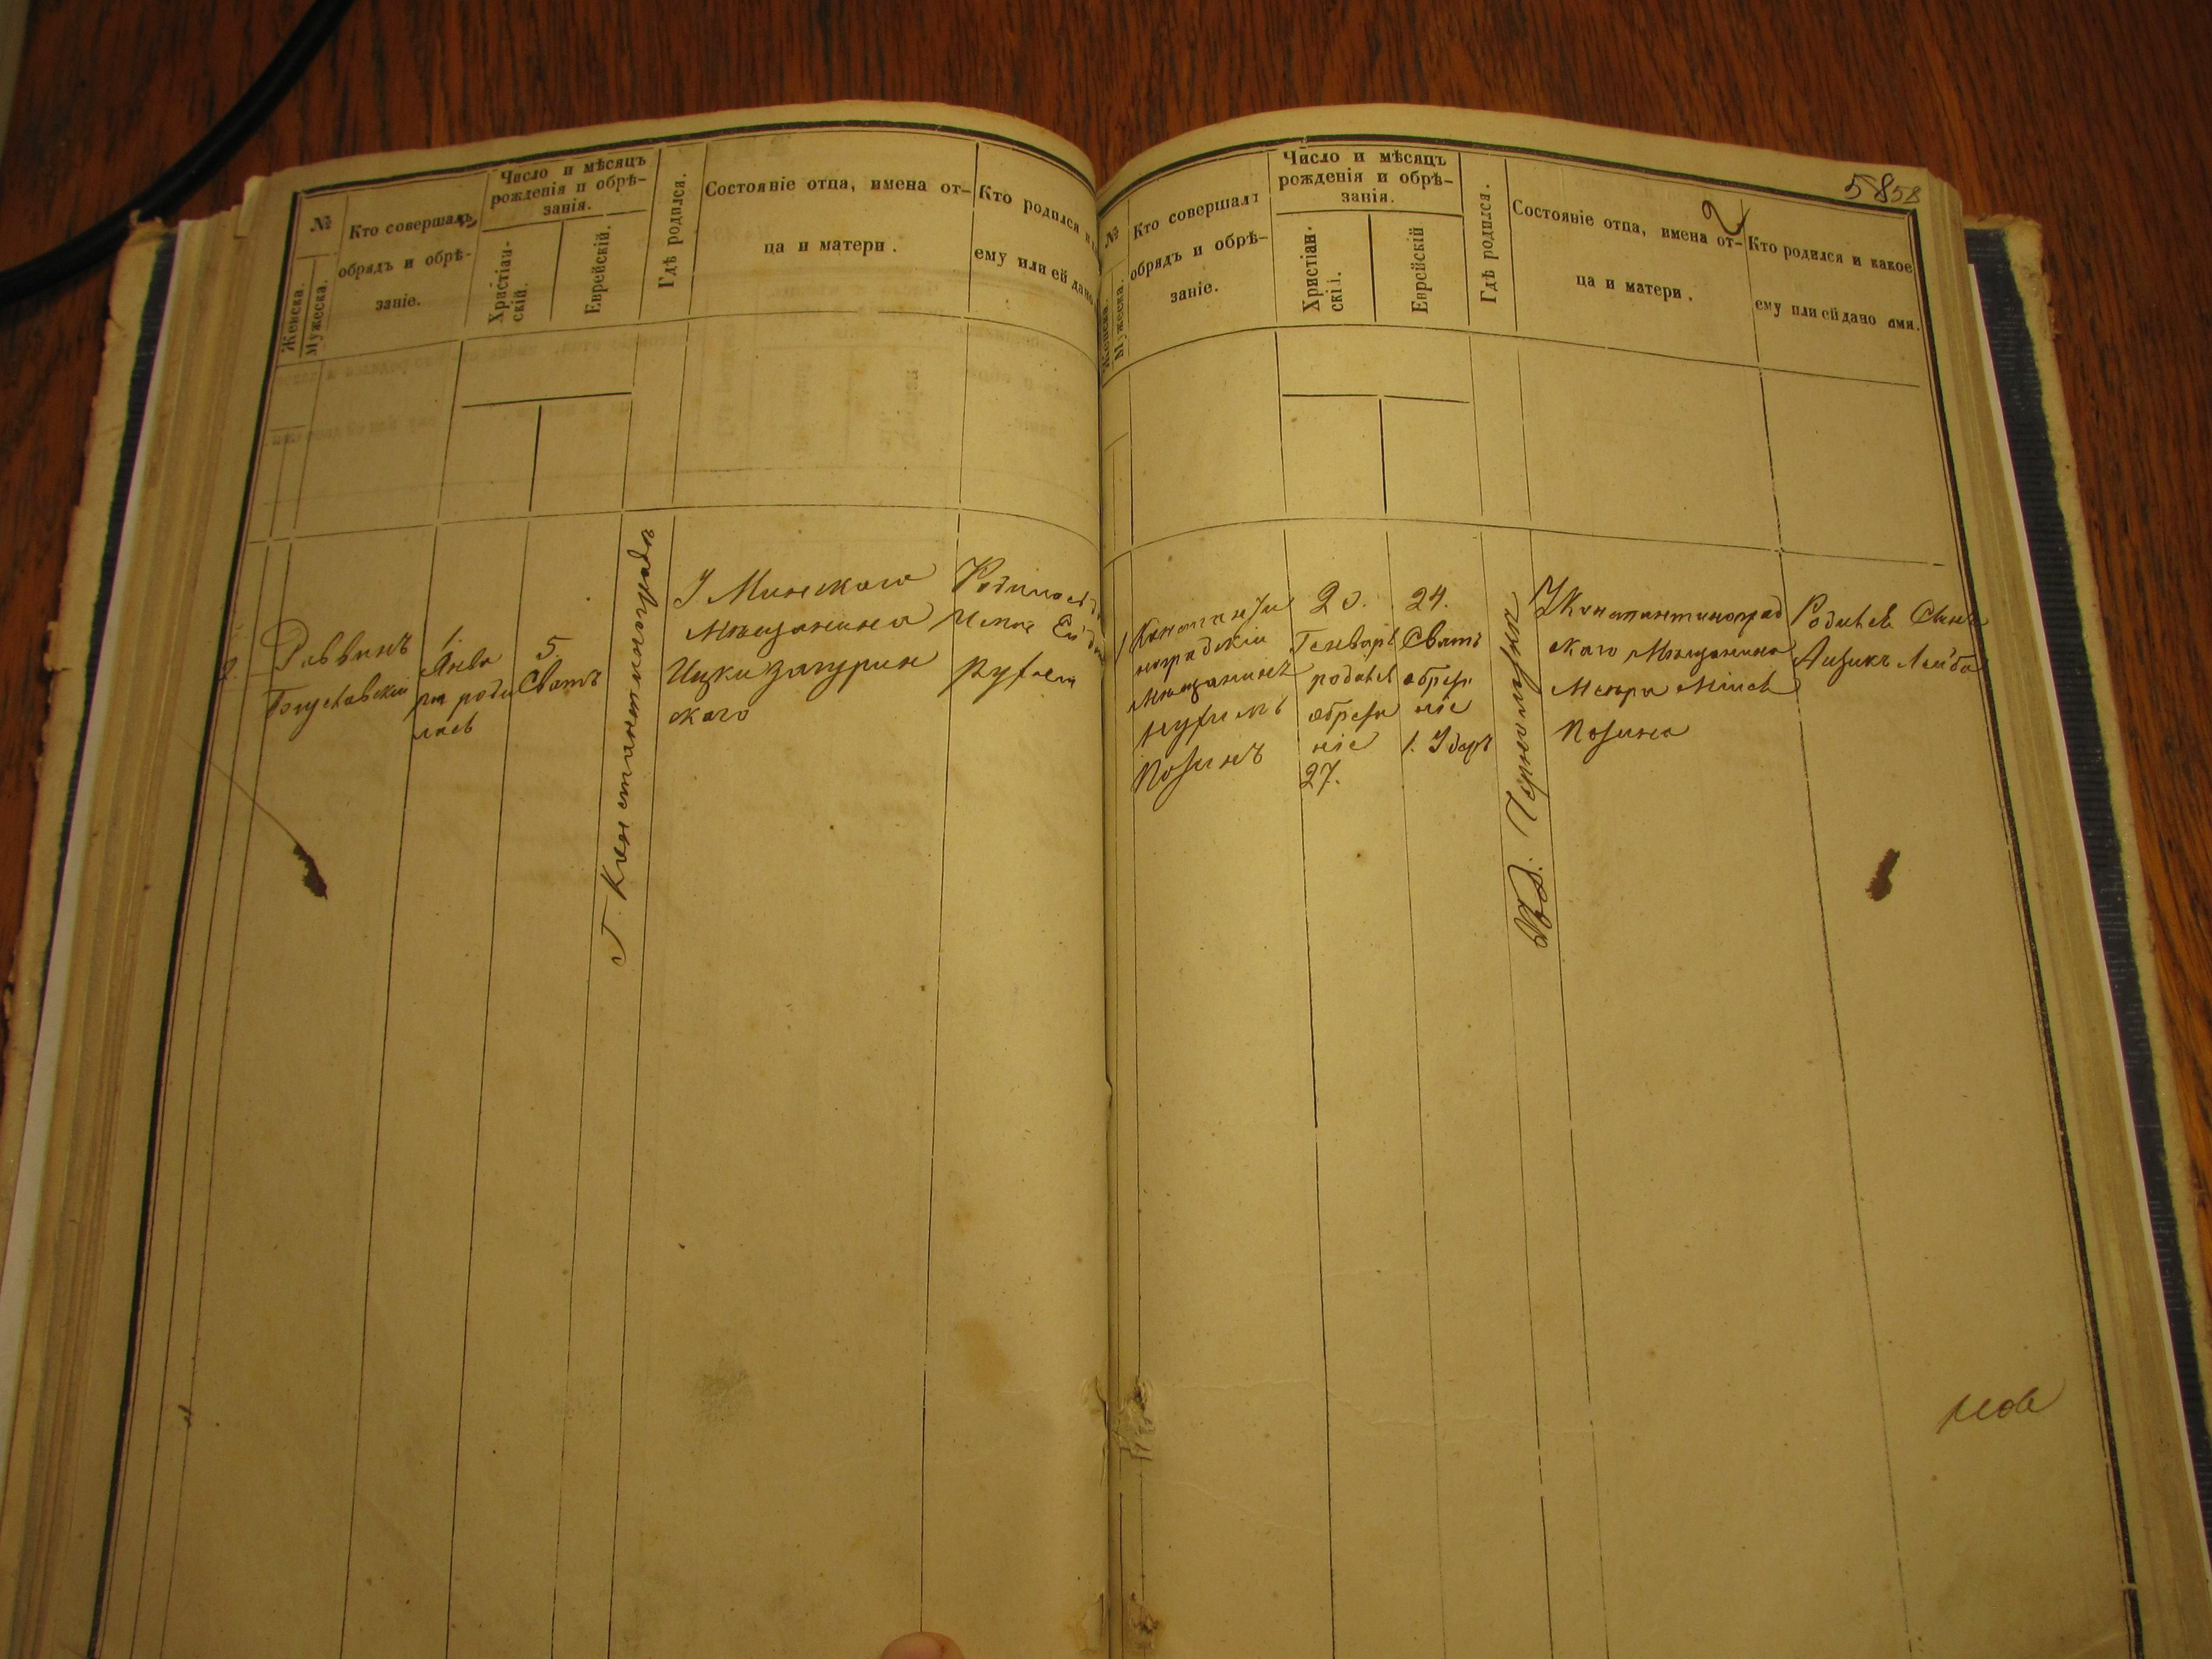 №
Женска.
Мужеска.
Кто совершалъ
обрядъ и обрѣ-
заніе.
Число и мѣсяцъ
рожденія и обрѣ-
занія.
Христіан-
скій.
Еврейскій.
Гдѣ родился.
Состояніе отца, имена от-
ца и матери.
Кто родился и
ему или ей дано
2.
Раввинъ
Богуславскій
1.
Янва
ря роди
лась
5.
Сватъ
Г. Константиноградъ
У Минскаго
Мѣщанина
Ицки
скаго
Родилась
Имя Ей
58 58
2
№
Женска.
Мужеска.
Кто совершалъ
обрядъ и обрѣ-
заніе.
Число и мѣсяцъ
рожденія и обрѣ-
занія.
Христіан-
скій.
Еврейскій
Гдѣ родился.
Состояніе отца, имена от-
ца и матери.
Кто родился и какое
ему или ей дано имя.
1
Константи
ноградскій
мѣщанинъ
20.
Генваря
родился
обреза
ніе
27.
24.
Сватъ
обреза
ніе
1. Адаръ
У Константиноград
скаго Мѣщанина
Родился Сынъ
Айзикъ Лейба